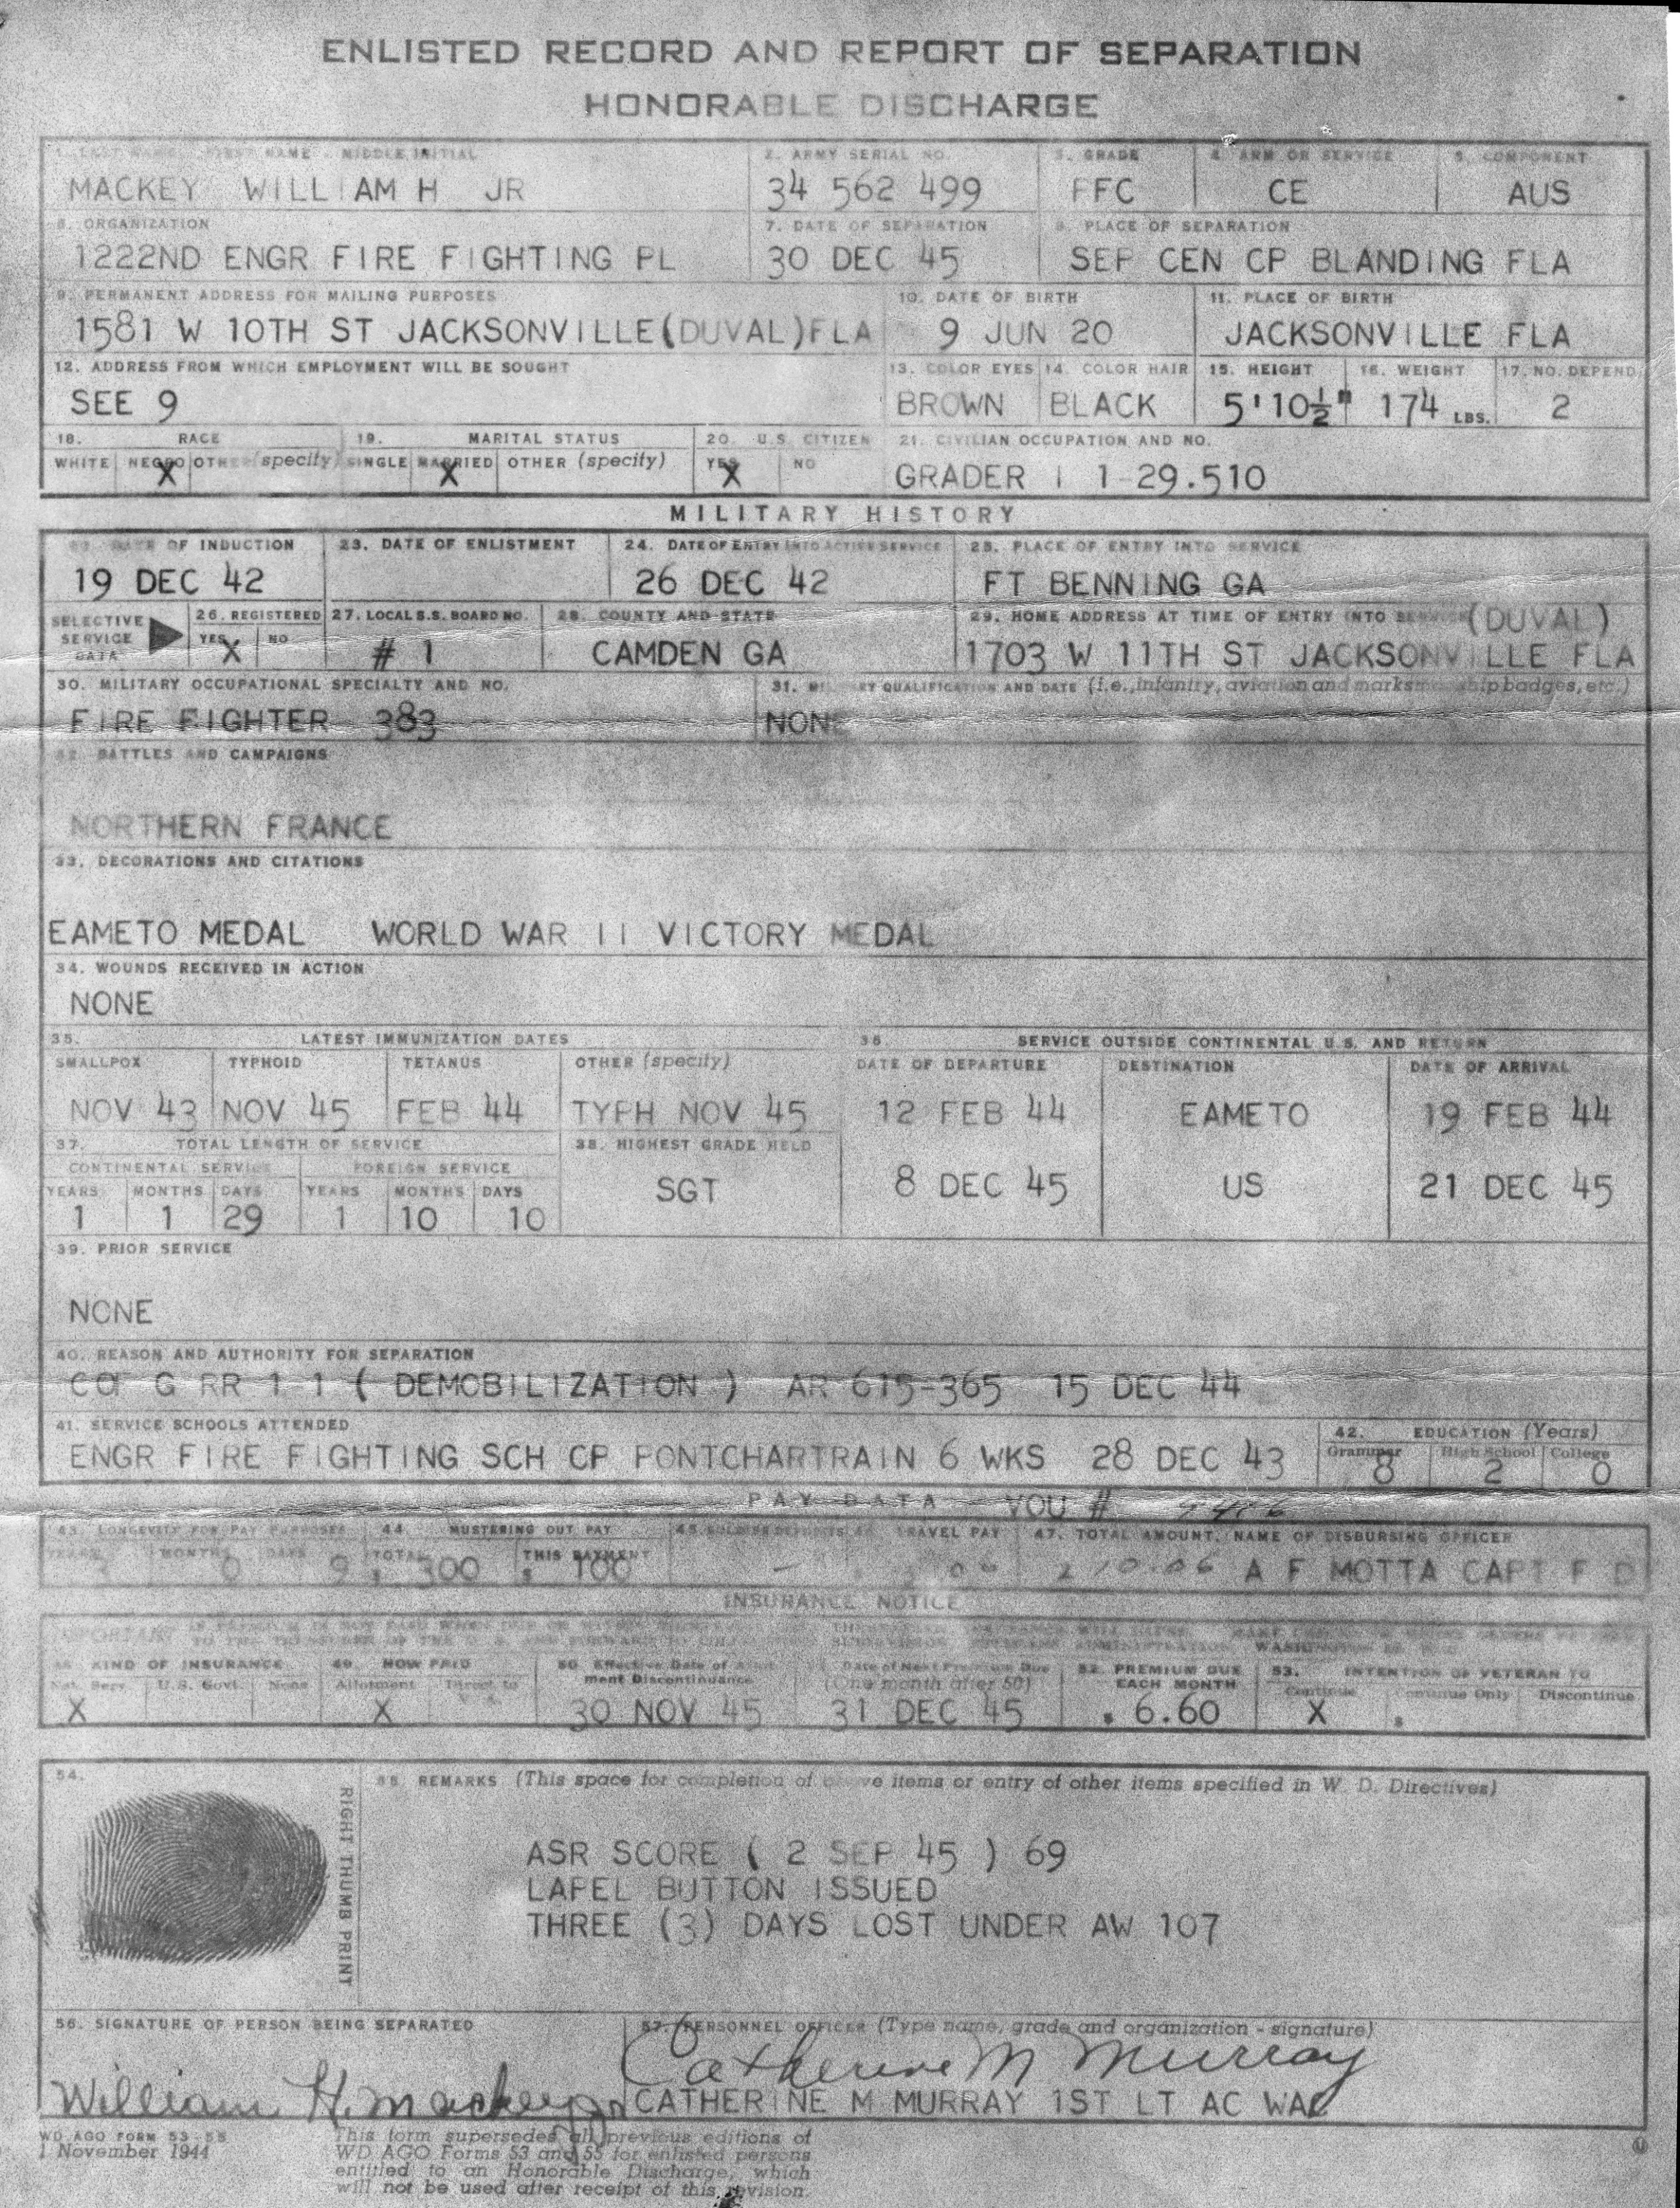 ENLISTED RECORD AND REPORT OF SEPARATION
HONORABLE DISCHARGE
1. LAST NAME - FIRST NAME - MIDDLE INITIAL 2. ARMY SERIAL NO. 3. GRADE 4. ARM OR SERVICE 5. COMPONENT
MACKEY WILLIAM H JR 34 562 499 PFC CE AUS
6. ORGANIZATION 7. DATE OF SEPARATION 8. PLACE OF SEPARATION
1222ND ENGR FIRE FIGHTING PL 30 DEC 45 SEP CEN CP BLANDING FLA
9. PERMANENT ADDRESS FOR MAILING PURPOSES 10. DATE OF BIRTH 11. PLACE OF BIRTH
1581 W 10TH ST JACKSONVILLE(DUVAL)FLA 9 JUN 20 JACKSONVILLE FLA
12. ADDRESS FROM WHICH EMPLOYMENT WILL BE SOUGHT 13. COLOR EYES 14. COLOR HAIR 15. HEIGHT 16. WEIGHT 17. NO. DEPEND.
SEE 9 BROWN BLACK 5'10½" 174 LBS. 2
18. RACE 19. MARITAL STATUS 20. U.S. CITIZEN 21. CIVILIAN OCCUPATION AND NO.
WHITE NEGRO OTHER (specify) SINGLE MARRIED OTHER (specify) YES NO
X X X GRADER 1 1-29.510
MILITARY HISTORY
22. DATE OF INDUCTION 23. DATE OF ENLISTMENT 24. DATE OF ENTRY INTO ACTIVE SERVICE 25. PLACE OF ENTRY INTO SERVICE
19 DEC 42 26 DEC 42 FT BENNING GA
SELECTIVE SERVICE DATA 26. REGISTERED 27. LOCAL S.S. BOARD NO. 28. COUNTY AND STATE 29. HOME ADDRESS AT TIME OF ENTRY INTO SERVICE (DUVAL)
YES NO
X # 1 CAMDEN GA 1703 W 11TH ST JACKSONVILLE FLA
30. MILITARY OCCUPATIONAL SPECIALTY AND NO. 31. MILITARY QUALIFICATION AND DATE (i.e., infantry, aviation and marksmanship badges, etc.)
FIRE FIGHTER 383 NONE
32. BATTLES AND CAMPAIGNS
NORTHERN FRANCE
33. DECORATIONS AND CITATIONS
EAMETO MEDAL WORLD WAR II VICTORY MEDAL
34. WOUNDS RECEIVED IN ACTION
NONE
35. LATEST IMMUNIZATION DATES 36 SERVICE OUTSIDE CONTINENTAL U.S. AND RETURN
SMALLPOX TYPHOID TETANUS OTHER (specify) DATE OF DEPARTURE DESTINATION DATE OF ARRIVAL
NOV 43 NOV 45 FEB 44 TYPH NOV 45 12 FEB 44 EAMETO 19 FEB 44
37. TOTAL LENGTH OF SERVICE 38. HIGHEST GRADE HELD
CONTINENTAL SERVICE FOREIGN SERVICE
YEARS MONTHS DAYS YEARS MONTHS DAYS SGT 8 DEC 45 US 21 DEC 45
1 1 29 1 10 10
39. PRIOR SERVICE
NONE
40. REASON AND AUTHORITY FOR SEPARATION
COF G RR 1-1 ( DEMOBILIZATION ) AR 615-365 15 DEC 44
41. SERVICE SCHOOLS ATTENDED 42. EDUCATION (Years)
Grammar High School College
ENGR FIRE FIGHTING SCH CP PONTCHARTRAIN 6 WKS 28 DEC 43 8 2 0
PAY DATA VOU #
43. LONGEVITY FOR PAY PURPOSES 44. MUSTERING OUT PAY 45. SOLDIER DEPOSITS 46. TRAVEL PAY 47. TOTAL AMOUNT, NAME OF DISBURSING OFFICER
YEARS MONTHS DAYS TOTAL THIS PAYMENT
3 0 9 $ 300 $ 100 A F MOTTA CAPT F D
INSURANCE NOTICE
IMPORTANT
48. KIND OF INSURANCE 49. HOW PAID 50. Effective Date of Allotment Discontinuance Date of Next Premium Due (One month after 50) 52. PREMIUM DUE EACH MONTH 53. INTENTION OF VETERAN TO
Nat. Serv. U.S. Govt. None Allotment Direct to V. A. Continue Continue Only Discontinue
X X 30 NOV 45 31 DEC 45 $ 6.60 X $
54. RIGHT THUMB PRINT
55. REMARKS (This space for completion of above items or entry of other items specified in W. D. Directives)
ASR SCORE ( 2 SEP 45 ) 69
LAPEL BUTTON ISSUED
THREE (3) DAYS LOST UNDER AW 107
56. SIGNATURE OF PERSON BEING SEPARATED 57. PERSONNEL OFFICER (Type name, grade and organization - signature)
Catherine M Murray
William H. Mackey Jr CATHERINE M MURRAY 1ST LT AC WAC
WD AGO FORM 53-55
1 November 1944
This form supersedes all previous editions of
WD AGO Forms 53 and 55 for enlisted persons
entitled to an Honorable Discharge, which
will not be used after receipt of this revision.